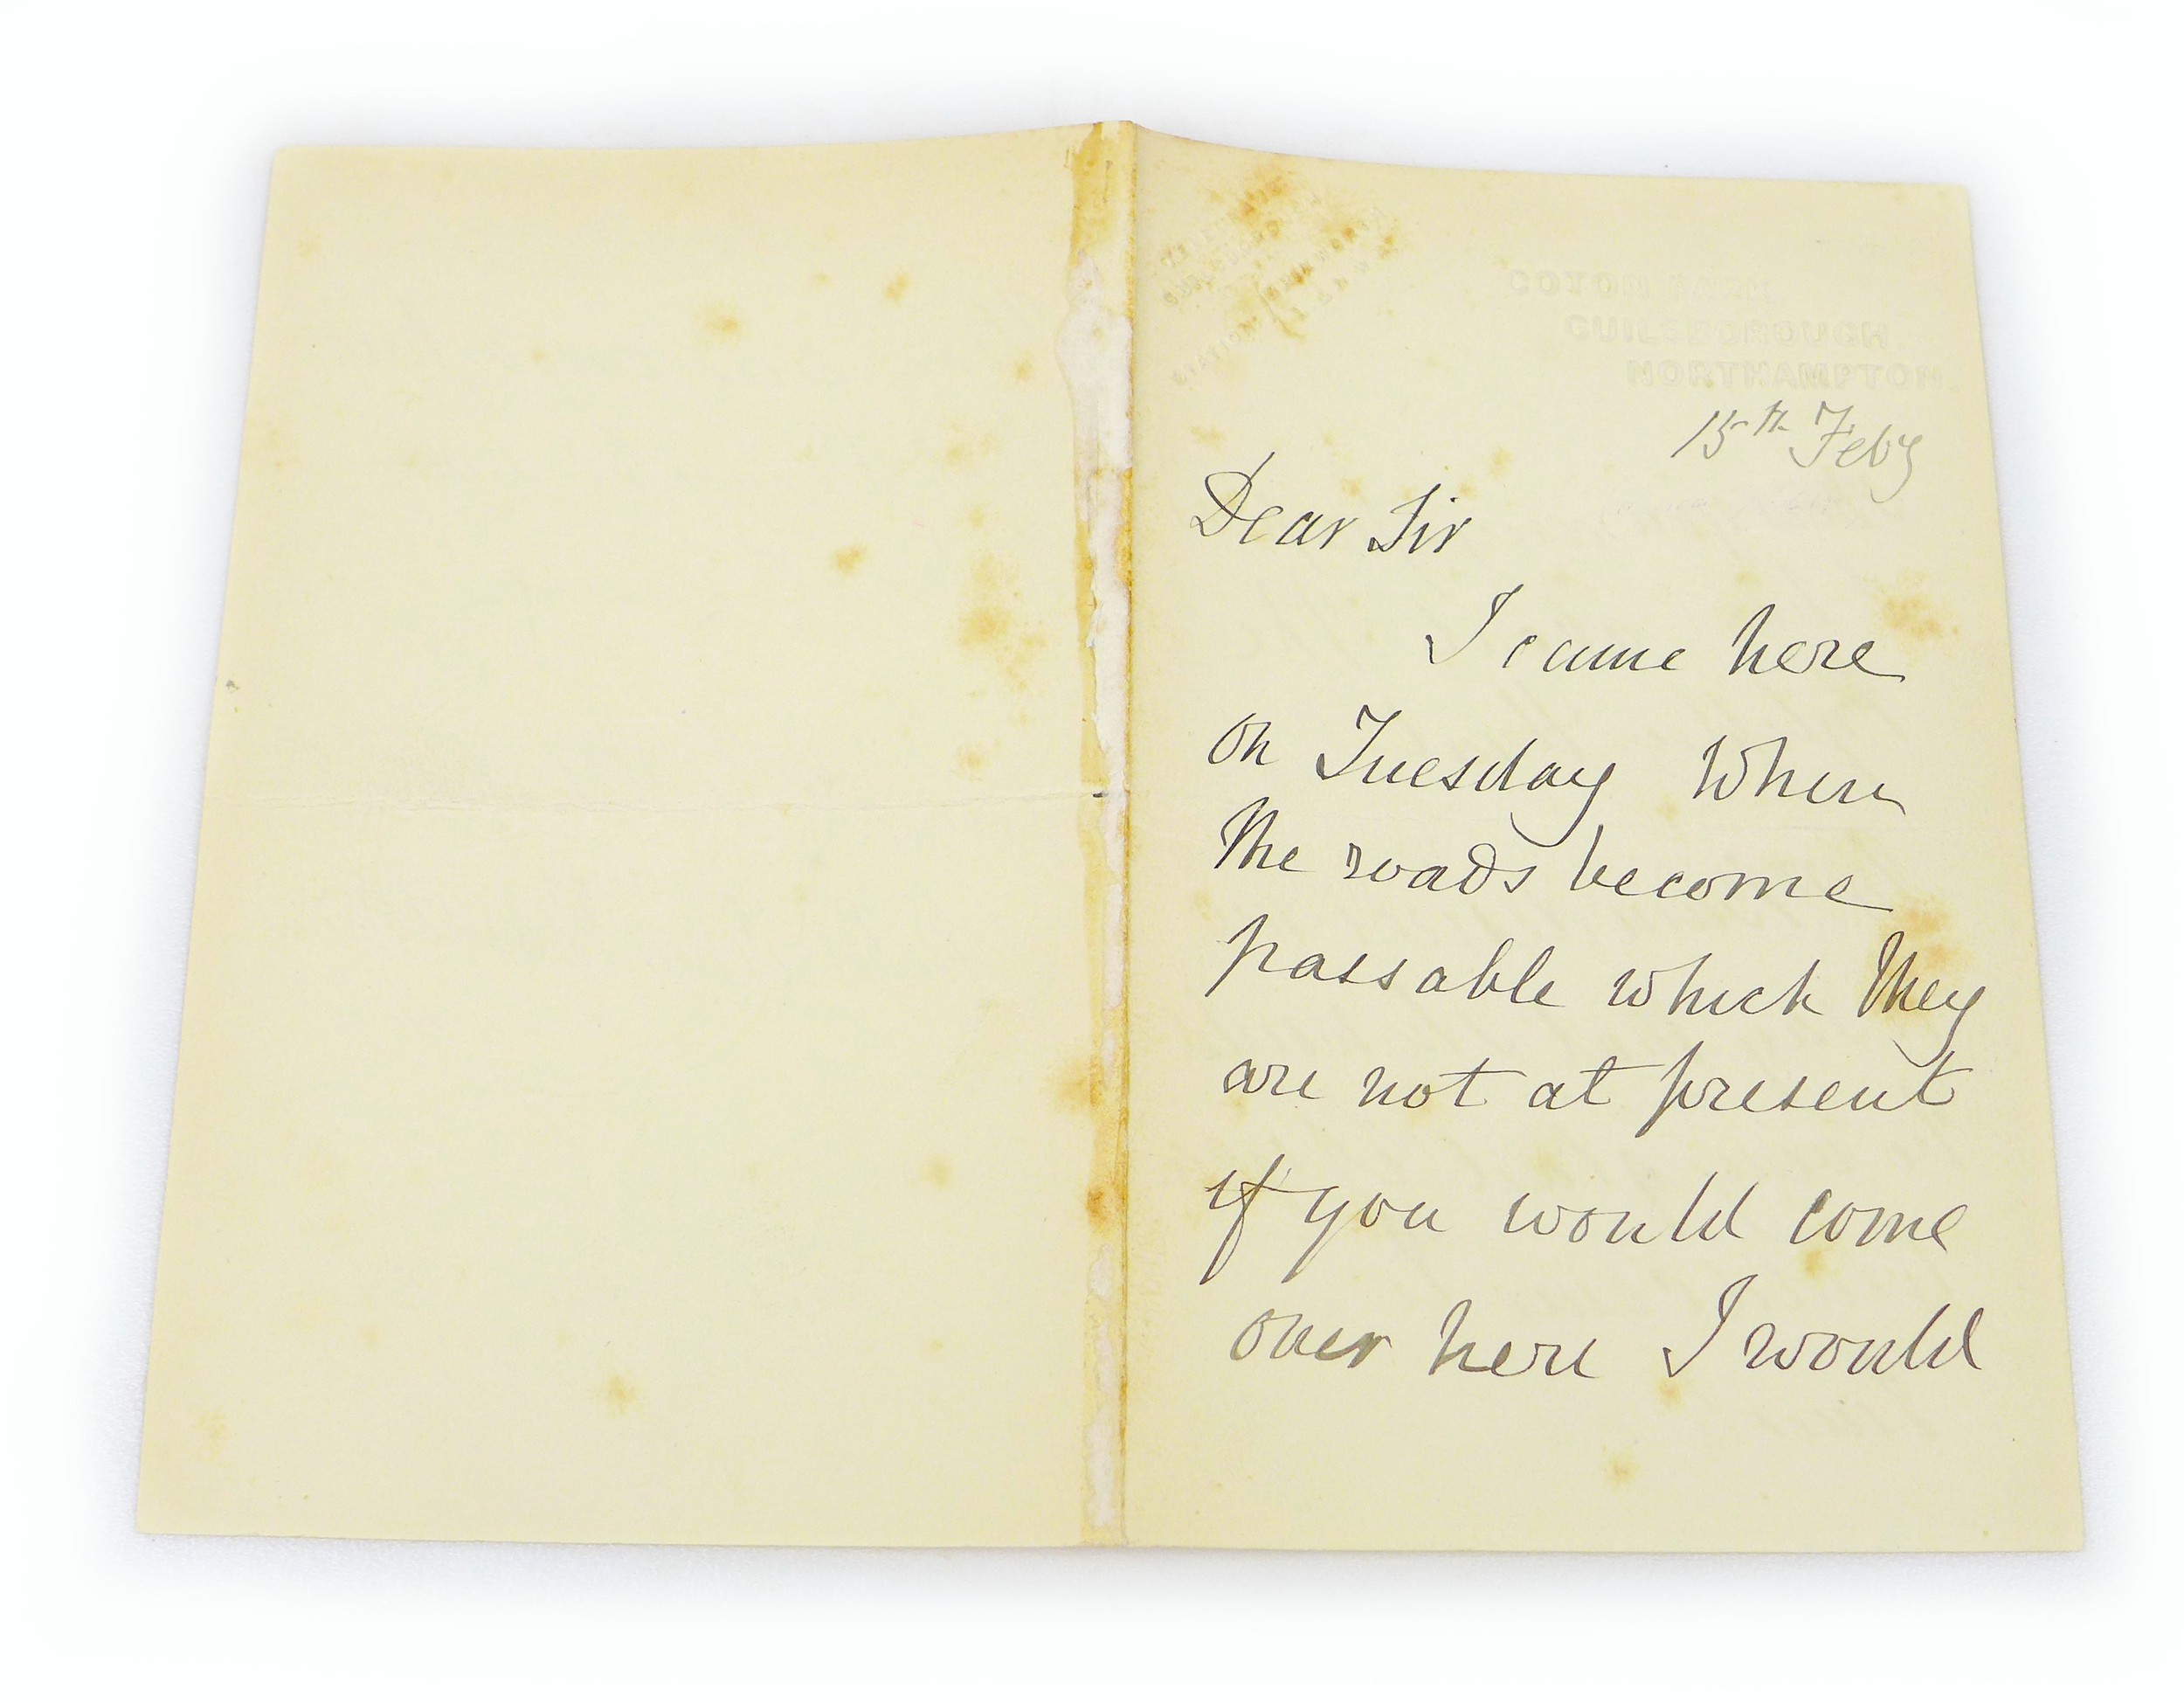 COTON PARK
GUILSBOROUGH
NORTHAMPTON
15th Feby
Dear Sir
I came here
on Tuesday When
the roads become
passable which they
are not at present
if you would come
over here I would